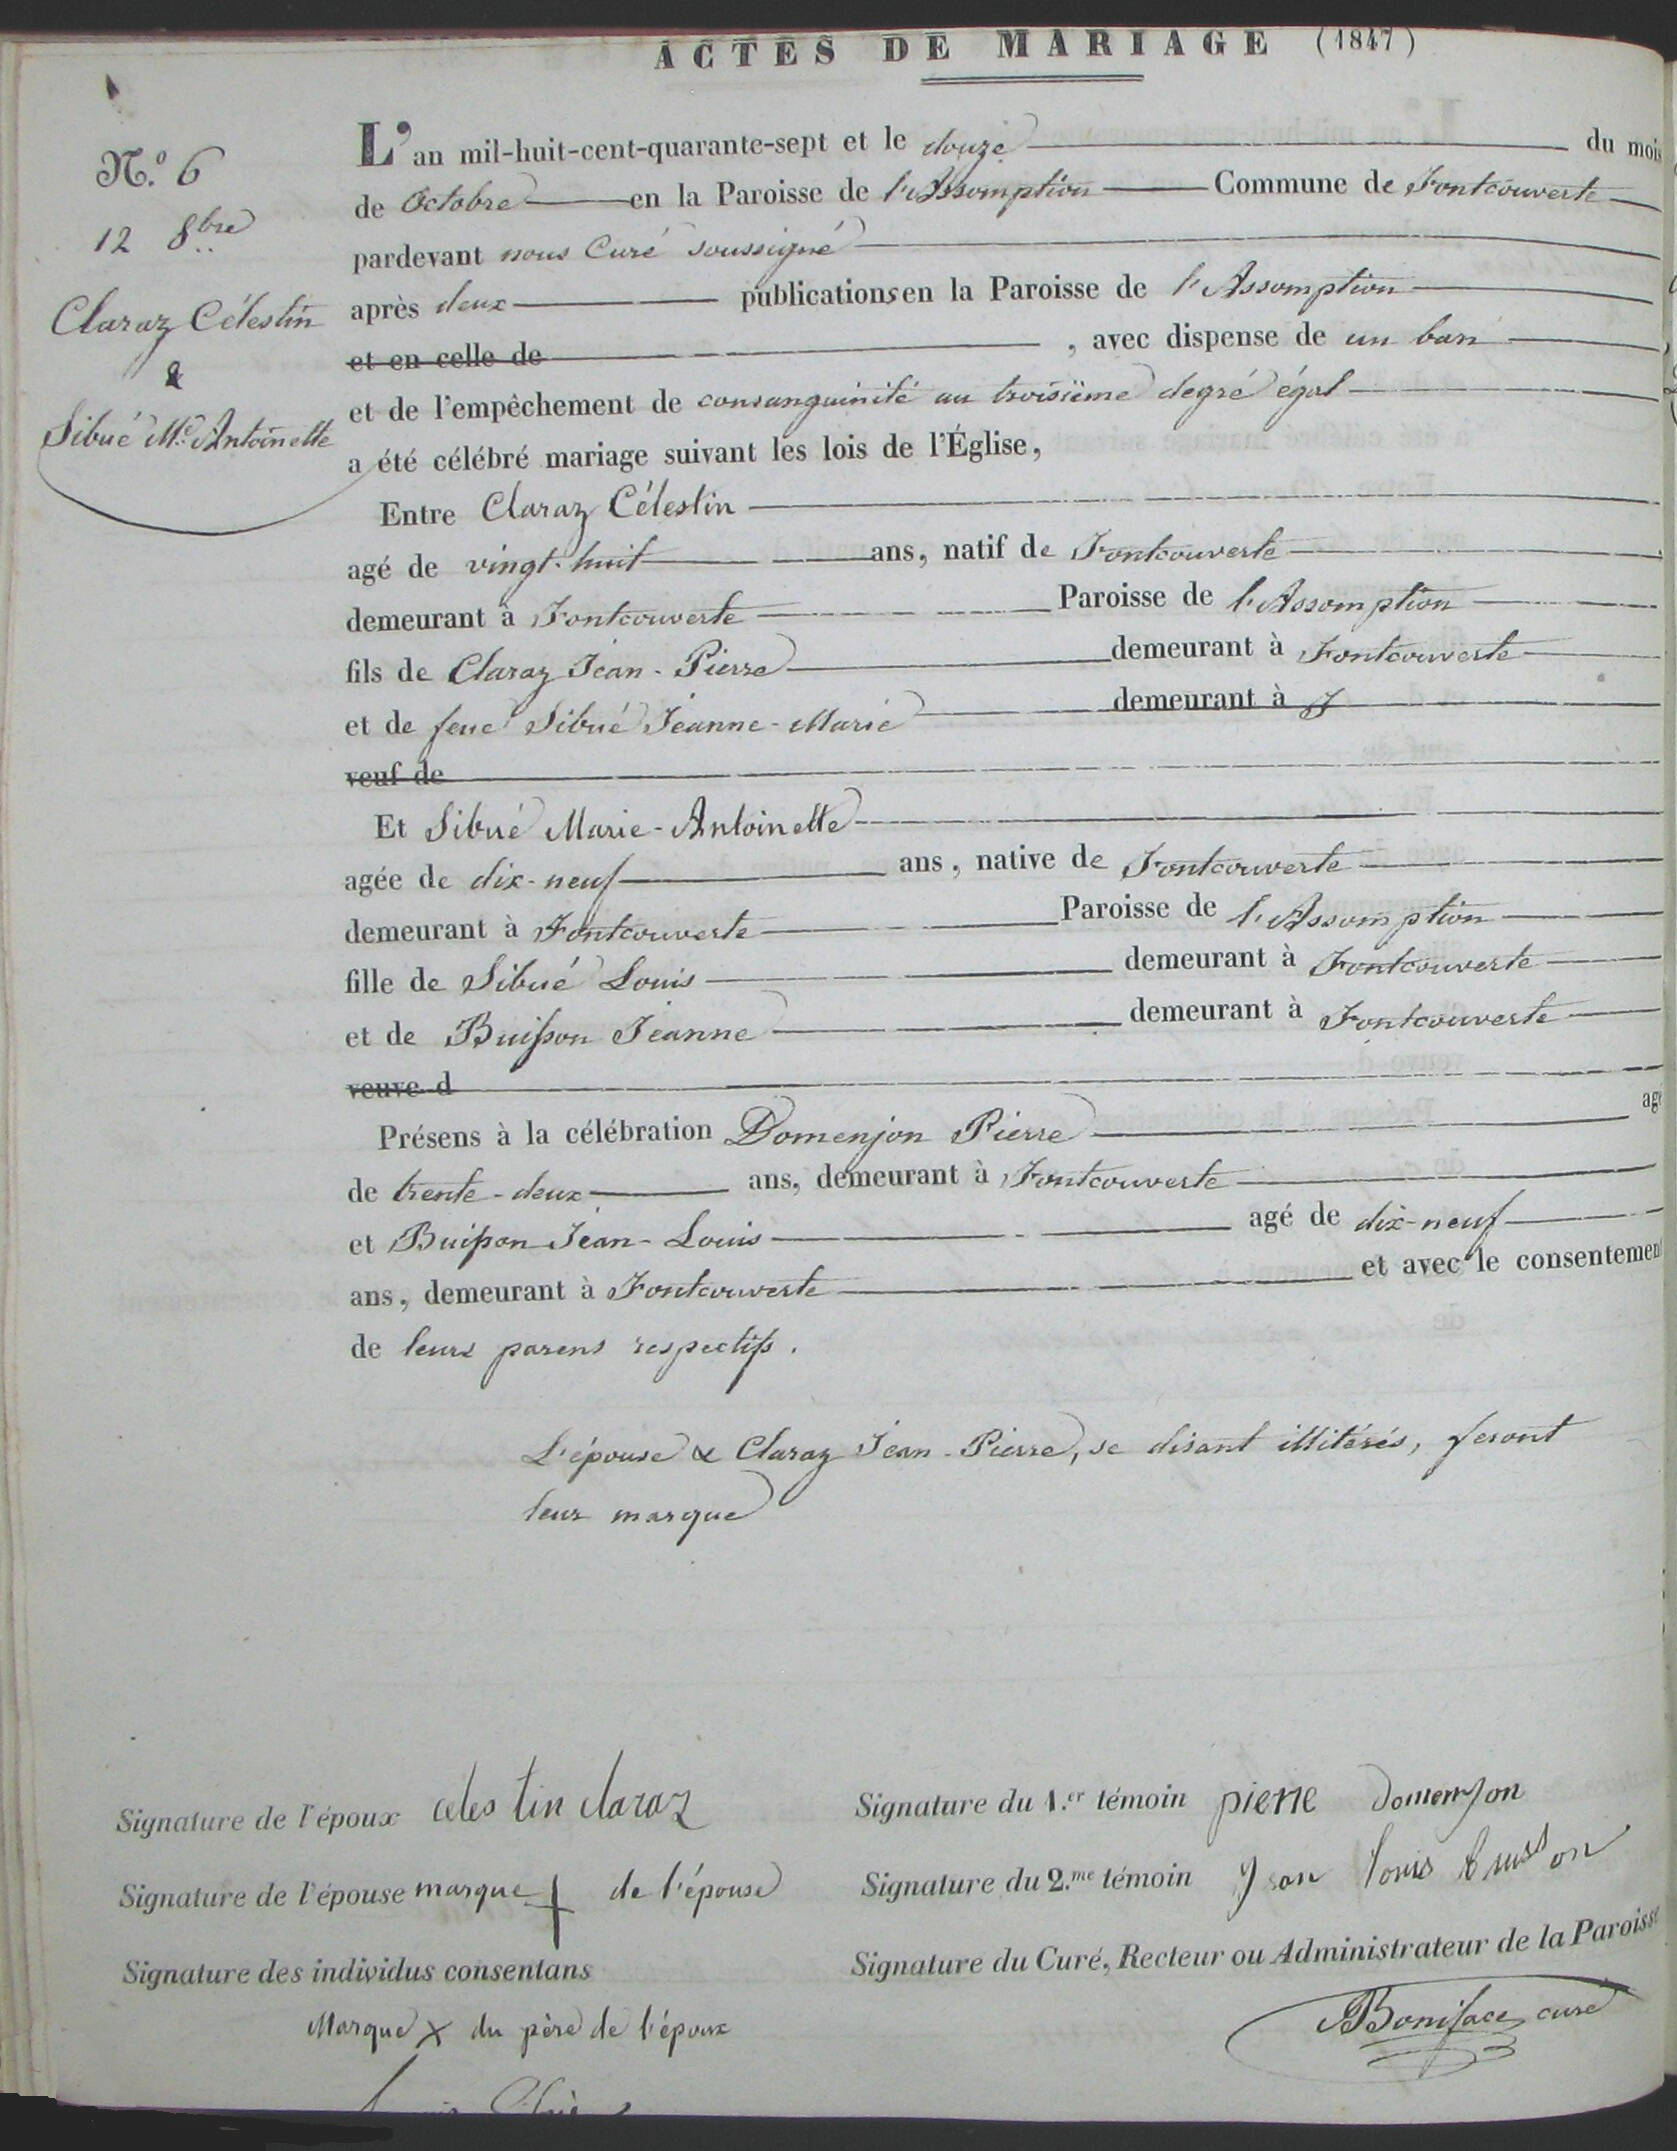 ACTES DE MARIAGE (1847)
N.º 6
12 8bre
Claraz Célestin
&
Sibué Mie Antoinette
L'an mil-huit-cent-quarante-sept et le douze du mois
de Octobre en la Paroisse de l'Assomption Commune de Fontcouverte
pardevant nous Curé soussigné
après deux publications en la Paroisse de l'Assomption
et en celle de , avec dispense de un ban
et de l'empêchement de consanguinité au troisième degré égal
a été célébré mariage suivant les lois de l'Église,
Entre Claraz Célestin
agé de vingt-huit ans, natif de Fontcouverte
demeurant à Fontcouverte Paroisse de l'Assomption
fils de Claraz Jean-Pierre demeurant à Fontcouverte
et de feue Sibué Jeanne-Marie demeurant à
veuf de
Et Sibué Marie-Antoinette
agée de dix-neuf ans, native de Fontcouverte
demeurant à Fontcouverte Paroisse de l'Assomption
fille de Sibué Louis demeurant à Fontcouverte
et de Buisson Jeanne demeurant à Fontcouverte
veuve d
Présens à la célébration Domenjon Pierre agé
de trente-deux ans, demeurant à Fontcouverte
et Buisson Jean-Louis agé de dix-neuf
ans, demeurant à Fontcouverte et avec le consentement
de leurs parens respectifs.
L'épouse & Claraz Jean-Pierre, se disant illitérés, feront
leur marque
Signature de l'époux celestin claraz
Signature du 1.er témoin pierre domenjon
Signature de l'épouse marque + de l'épouse
Signature du 2.me témoin Jean louis buisson
Signature des individus consentans
Signature du Curé, Recteur ou Administrateur de la Paroisse
Marque x du père de l'époux
Boniface curé